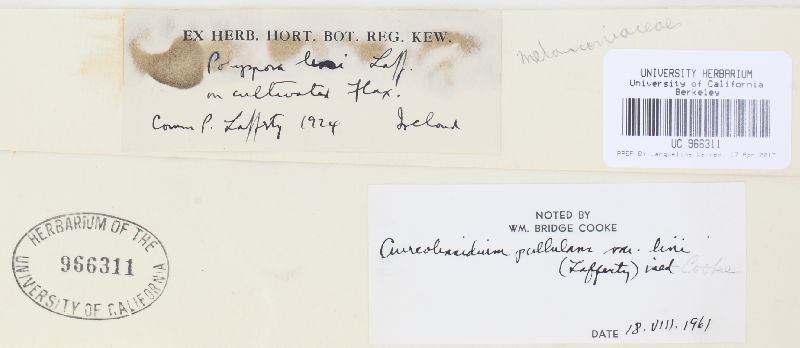 EX HERB. HORT. BOT. REG. KEW.
Polyspora lini Laff.
on cultivated Flax.
Comm P. Lafferty 1924 Ireland
melanconiaceae
UNIVERSITY HERBARIUM
University of California
Berkeley
UC 966311
PREP BY Jacqueline 17 Apr 2017
HERBARIUM OF THE
966311
UNIVERSITY OF CALIFORNIA
NOTED BY
WM. BRIDGE COOKE
Aureobasidium pullulans var. lini
(Lafferty) ined Cooke
DATE 18. VIII. 1961